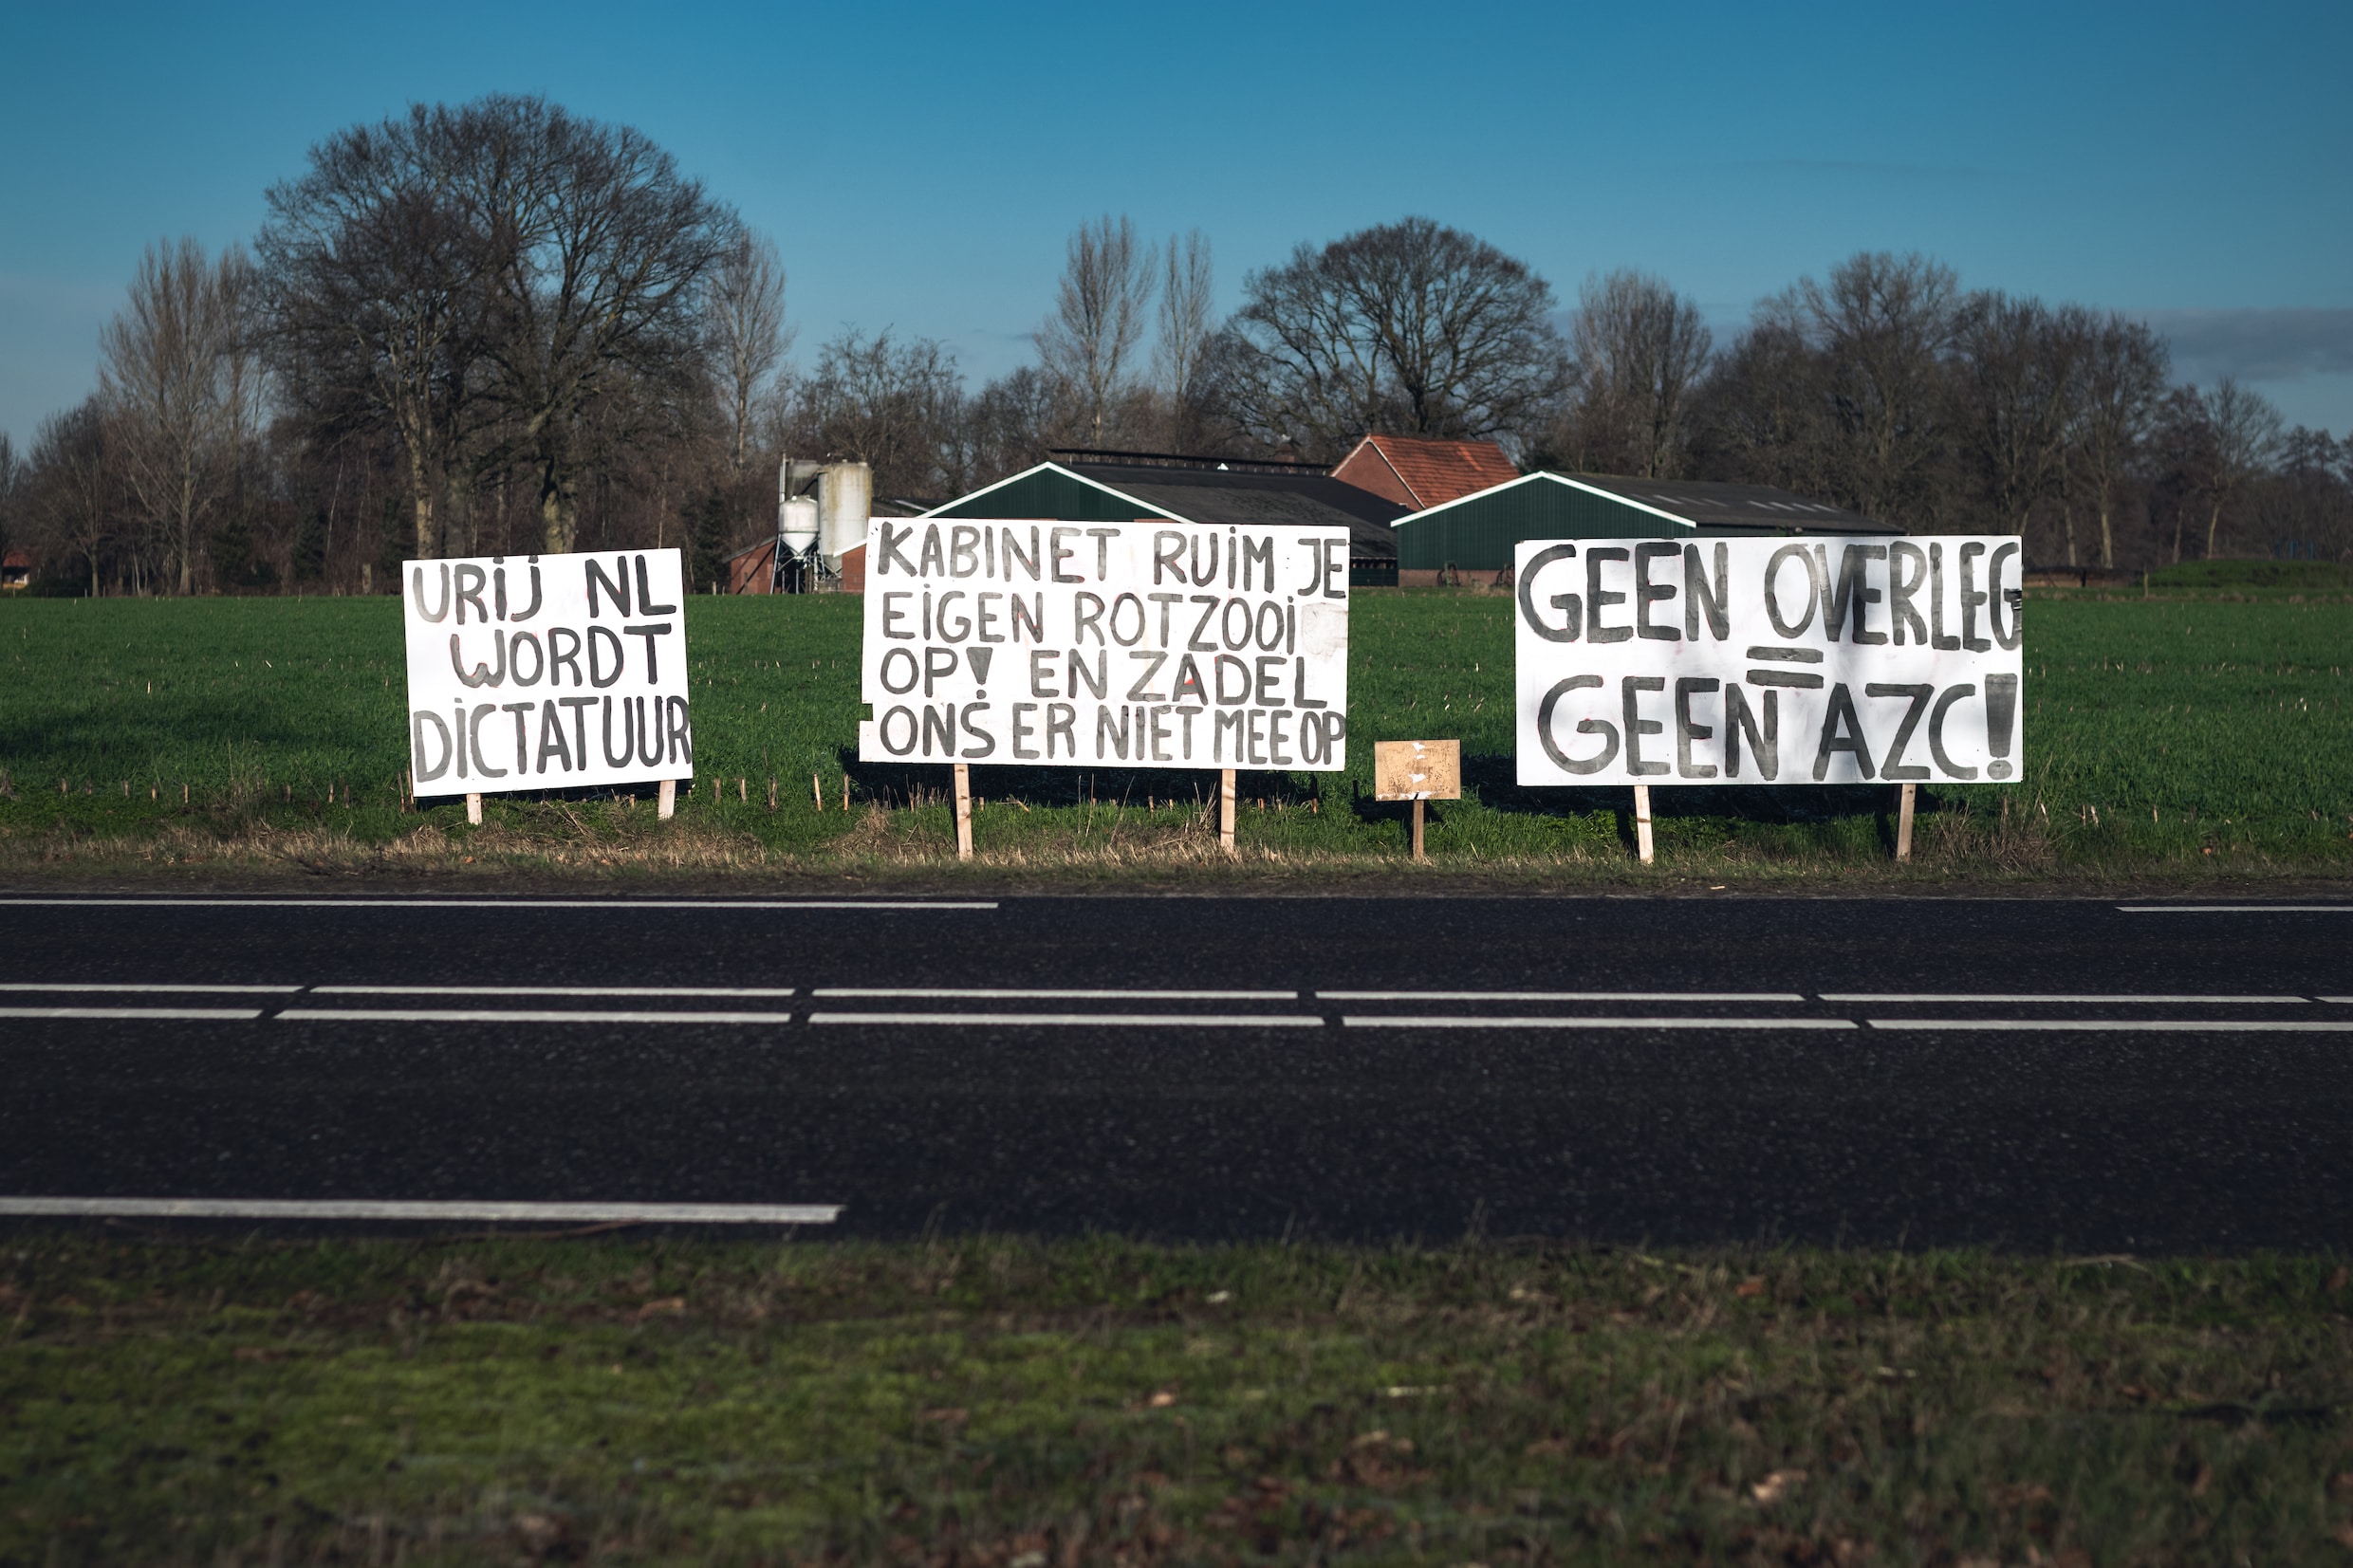 VRIJ NL
WORDT
DICTATUUR
KABINET RUIM JE
EIGEN ROTZOOI
OP! EN ZADEL
ONS ER NIET MEE OP
GEEN OVERLEG
=
GEEN AZC!